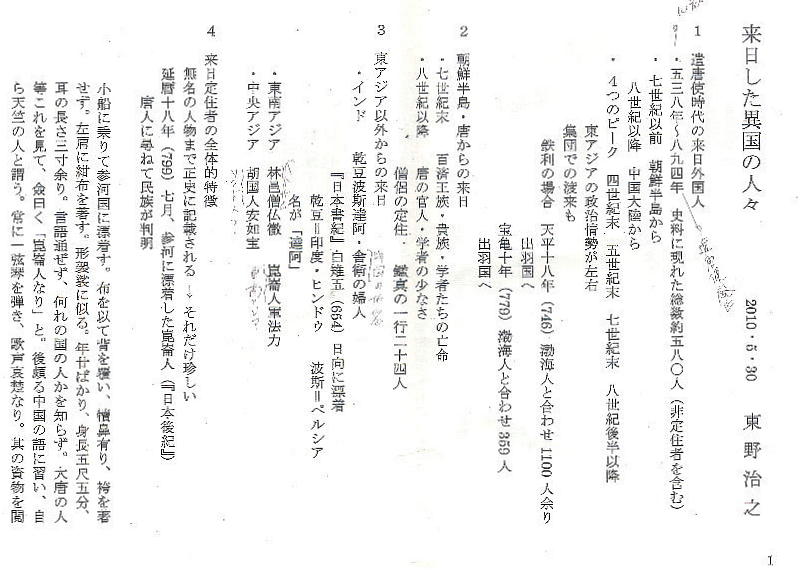 来日した異国の人々
2010・5・30　東野治之
1　遣唐使時代の来日外国人
・五三八年～八九四年　史料に現れた総数約五八〇人（非定住者を含む）
・七世紀以前　朝鮮半島から
八世紀以降　中国大陸から
・４つのピーク　四世紀末　五世紀末　七世紀末　八世紀後半以降
東アジアの政治情勢が左右
集団での渡来も
鉄利の場合　天平十八年（746）渤海人と合わせ 1100 人余り
出羽国へ
宝亀十年（779）渤海人と合わせ 359 人
出羽国へ
2　朝鮮半島・唐からの来日
・七世紀末　百済王族・貴族・学者たちの亡命
・八世紀以降　唐の官人・学者の少なさ
僧侶の定住　鑑真の一行二十四人
3　東アジア以外からの来日
・インド　乾豆波斯達阿・舎衛の婦人
『日本書紀』白雉五（654）日向に漂着
乾豆＝印度・ヒンドウ　波斯＝ペルシア
名が「達阿」
・東南アジア　林邑僧仏徹　崑崙人軍法力
・中央アジア　胡国人安如宝
4　来日定住者の全体的特徴
無名の人物まで正史に記載される → それだけ珍しい
延暦十八年（799）七月、参河に漂着した崑崙人（『日本後紀』）
唐人に尋ねて民族が判明
小船に乗りて参河国に漂着す。布を以て背を覆い、犢鼻有り、袴を著
せず。左肩に紺布を著す。形袈裟に似る。年廿ばかり、身長五尺五分、
耳の長さ三寸余り。言語通ぜず、何れの国の人かを知らず。大唐の人
等これを見て、僉曰く「崑崙人なり」と。後頗る中国の語に習い、自
ら天竺の人と謂う。常に一弦琴を弾き、歌声哀楚なり。其の資物を閲
1